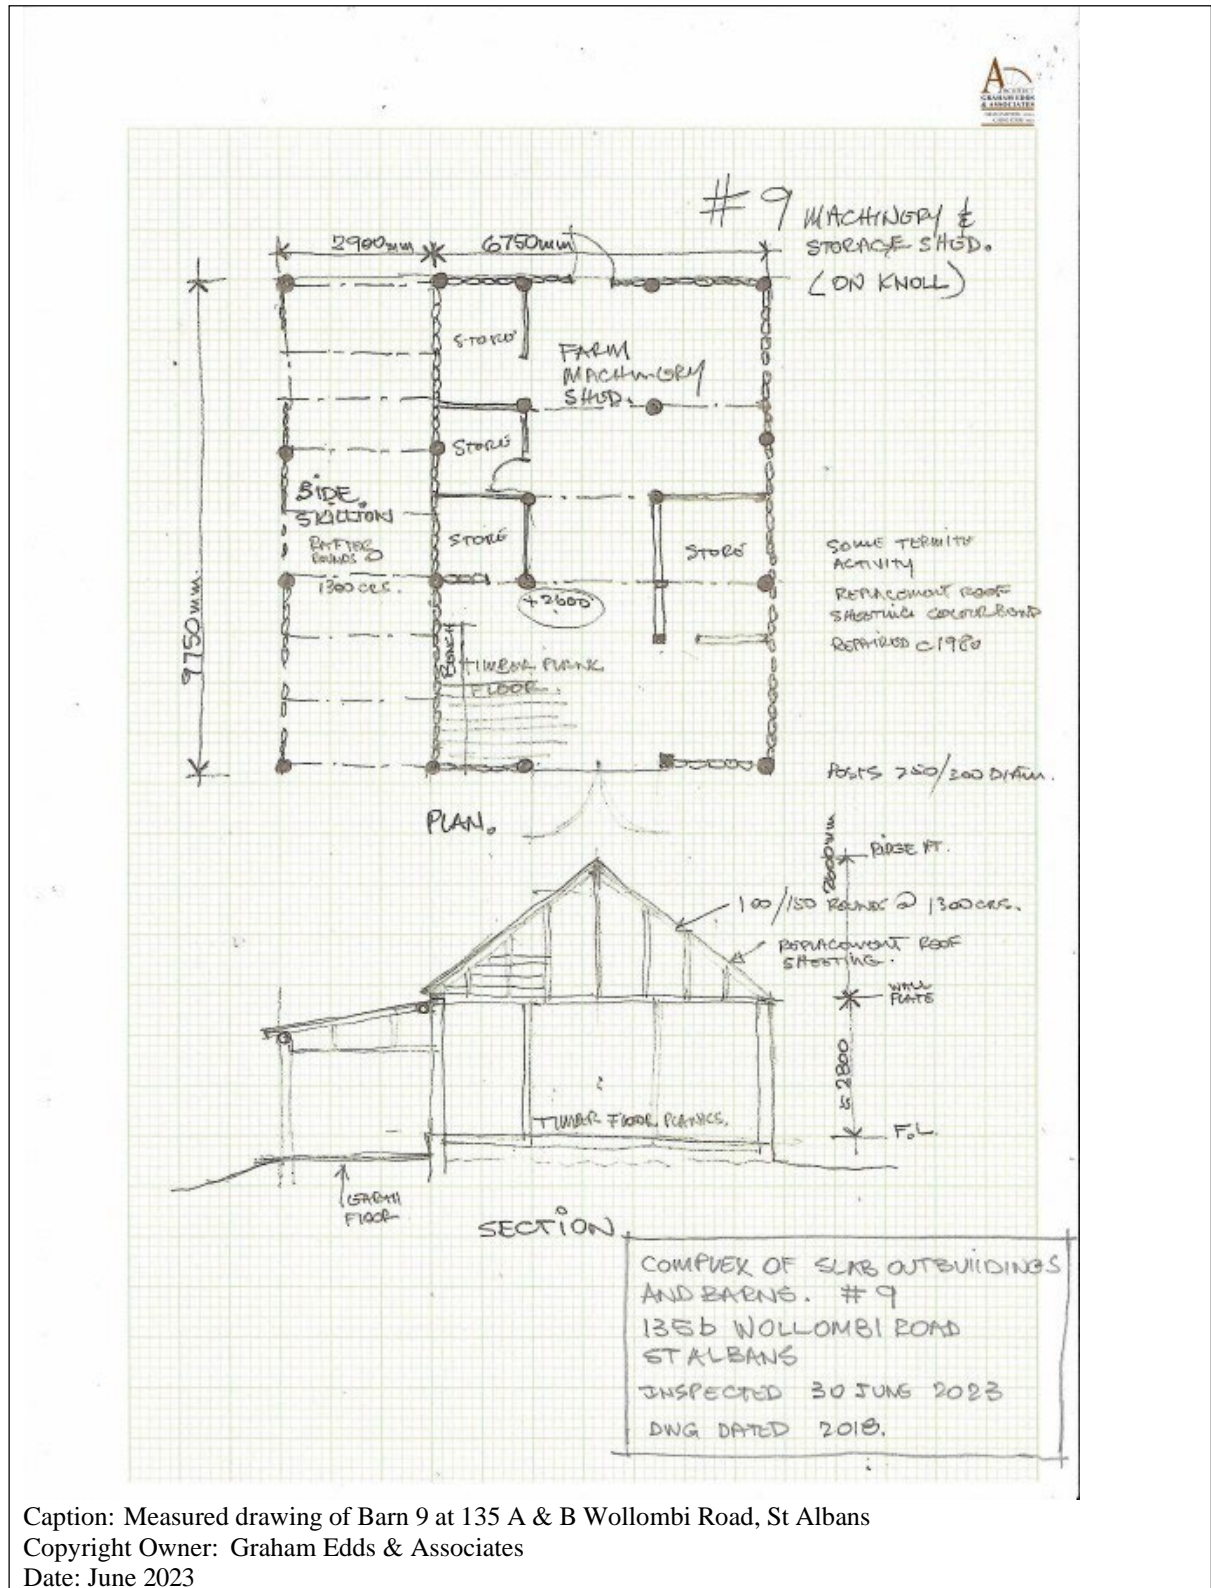 ARCHITECT
GRAHAM EDDS
& ASSOCIATES
# 9 MACHINERY &
STORAGE SHED.
(ON KNOLL)
2900mm
6750mm
STORE
FARM
MACHINERY
SHED.
STORE
SIDE
SKILLION
RAFTER
ROUNDS @
1300 CRS.
STORE
STORE
+2600
9750mm.
BENCH
TIMBER PLANK
FLOOR.
SOME TERMITE
ACTIVITY
REPLACEMENT ROOF
SHEETING COLOURBOND
REPAIRED c1980
POSTS 250/300 DIAM.
PLAN.
2600mm
RIDGE HT.
100/150 ROUNDS @ 1300 CRS.
REPLACEMENT ROOF
SHEETING.
WALL
PLATE
≈ 2800
TIMBER FLOOR PLANKS.
F.L.
EARTH
FLOOR
SECTION.
COMPLEX OF SLAB OUTBUILDINGS
AND BARNS. # 9
135b WOLLOMBI ROAD
ST ALBANS
INSPECTED 30 JUNE 2023
DWG DATED 2018.
Caption: Measured drawing of Barn 9 at 135 A & B Wollombi Road, St Albans
Copyright Owner: Graham Edds & Associates
Date: June 2023